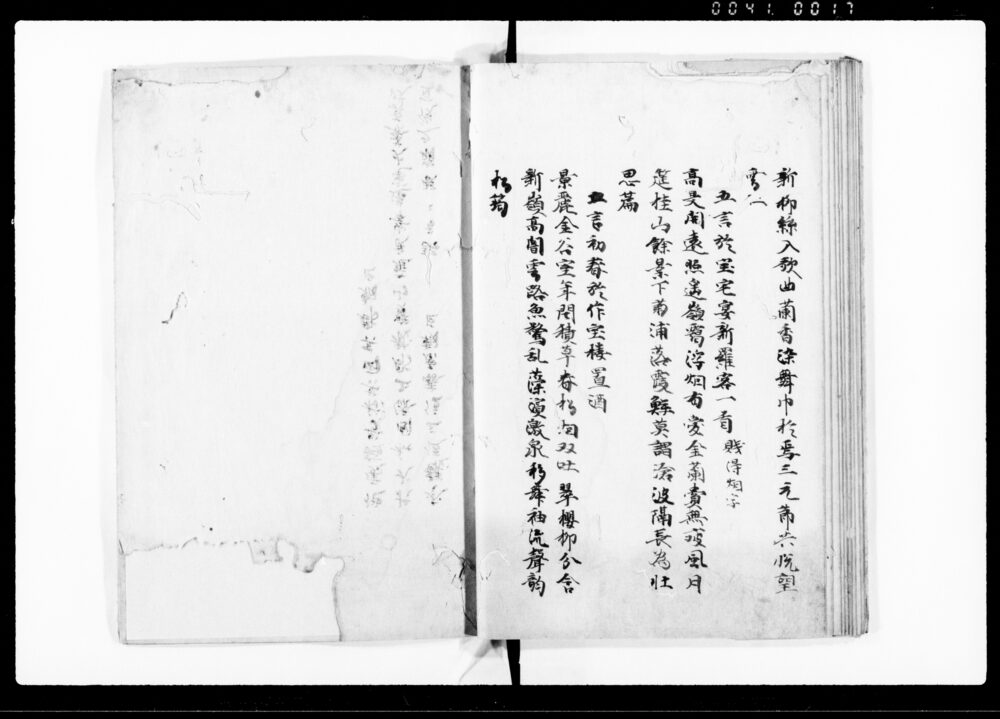 0041.0017
新柳絲入歌曲蘭香染舞巾於焉三元節共悦望
雲仁
五言於宝宅宴新羅客一首 賤得烟字
高旻開遠照遥嶺靄浮烟有愛金蘭賞無疲風月
筵桂山餘景下菊浦落霞鮮莫謂滄波隔長為壮
思篇
五言初春於作宝楼置酒
景麗金谷室年開積草春松烟双吐翠櫻柳分含
新嶺高闇雲路魚驚乱藻濱激泉移舞袖流聲韵
松筠